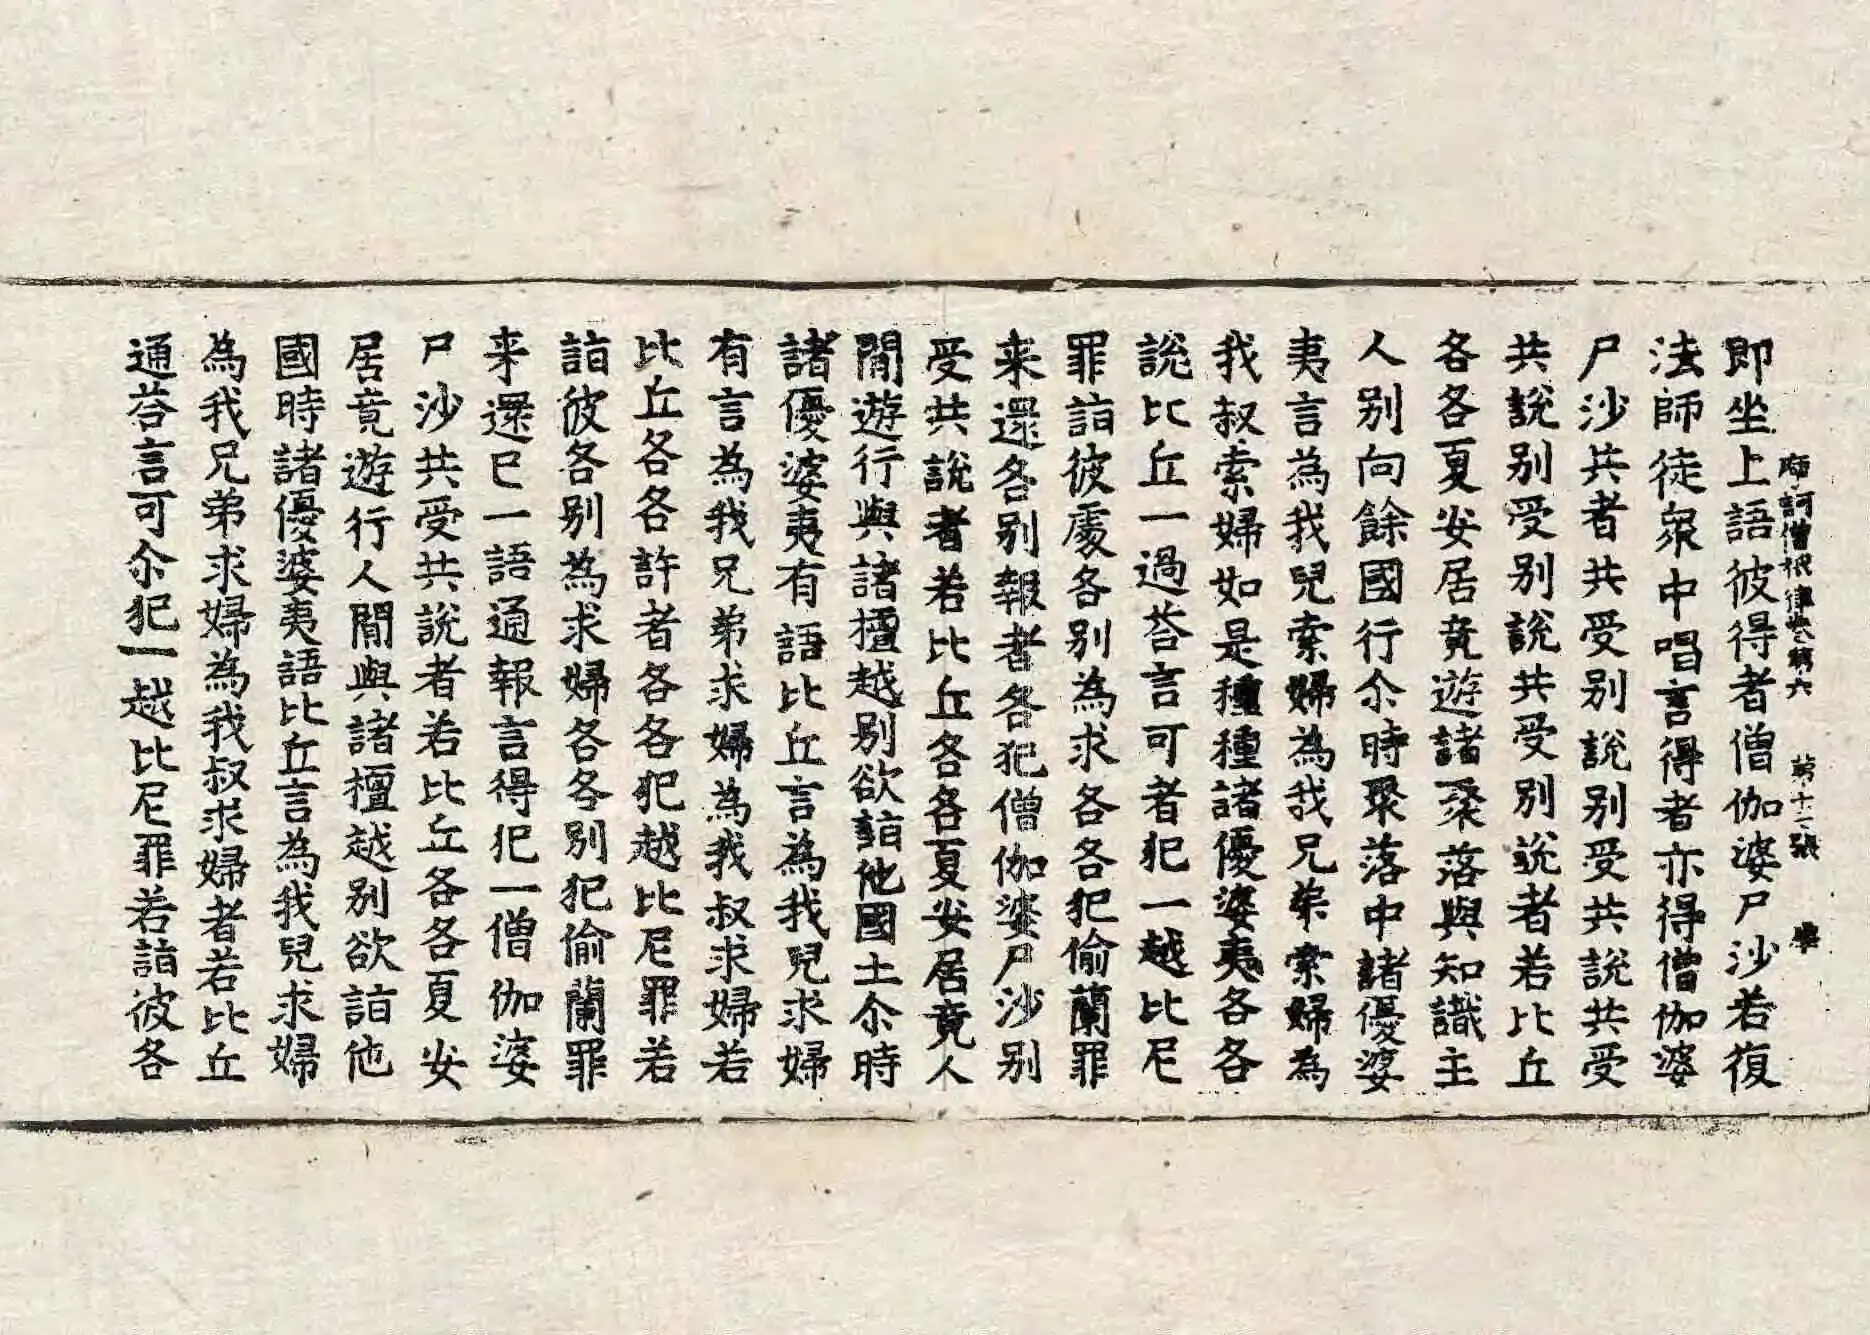 摩訶僧祇律卷第六 第十三張 樂
即坐上語彼得者僧伽婆尸沙若復
法師徒衆中唱言得者亦得僧伽婆
尸沙共者共受別說別受共說共受
共說別受別說共受別說者若比丘
各各夏安居竟遊諸聚落與知識主
人別向餘國行尒時聚落中諸優婆
夷言為我兒索婦為我兄弟索婦為
我叔索婦如是種種諸優婆夷各各
說比丘一過荅言可者犯一越比尼
罪詣彼處各別為求各各犯偷蘭罪
来還各別報者各犯僧伽婆尸沙別
受共說者若比丘各各夏安居竟人
閒遊行與諸檀越別欲詣他國土尒時
諸優婆夷有語比丘言為我兒求婦
有言為我兄弟求婦為我叔求婦若
比丘各各許者各各犯越比尼罪若
詣彼各別為求婦各各別犯偷蘭罪
来還已一語通報言得犯一僧伽婆
尸沙共受共說者若比丘各各夏安
居竟遊行人閒與諸檀越別欲詣他
國時諸優婆夷語比丘言為我兒求婦
為我兄弟求婦為我叔求婦者若比丘
通荅言可尒犯一越比尼罪若詣彼各